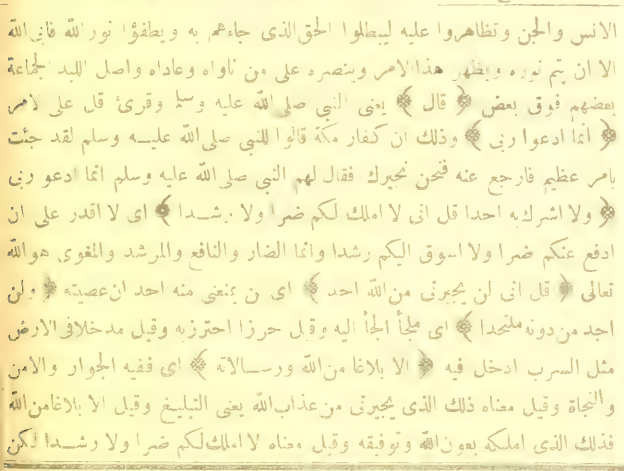 الانس والجن وتظاهروا عليه ليبطلوا الحق الذى جاءهم به ويطفؤا نور الله فابى الله
الا ان يتم نوره ويظهر هذا الامر وينصره على من ناواه وعاداه واصل اللبد الجماعة
بعضهم فوق بعض ﴿ قال ﴾ يعنى النبى صلى الله عليه وسلم وقرئ قل على الامر
﴿ انما ادعوا ربى ﴾ وذلك ان كفار مكة قالوا للنبى صلى الله عليه وسلم لقد جئت
بامر عظيم فارجع عنه فنحن نجيرك فقال لهم النبى صلى الله عليه وسلم انما ادعو ربى
﴿ ولا اشرك به احدا قل انى لا املك لكم ضرا ولا رشدا ﴾ اى لا اقدر على ان
ادفع عنكم ضرا ولا اسوق اليكم رشدا وانما الضار والنافع والمرشد والمغوى هو الله
تعالى ﴿ قل انى لن يجيرنى من الله احد ﴾ اى لن يمنعنى منه احد ان عصيته ﴿ ولن
اجد من دونه ملتحدا ﴾ اى ملجأ الجأ اليه وقيل حرزا احترز به وقيل مدخلا فى الارض
مثل السرب ادخل فيه ﴿ الا بلاغا من الله ورسالاته ﴾ اى ففيه الجوار والامن
والنجاة وقيل معناه ذلك الذى يجيرنى من عذاب الله يعنى التبليغ وقيل الا بلاغا من الله
فذلك الذى املكه بعون الله وتوفيقه وقيل معناه لا املك لكم ضرا ولا رشدا لكن